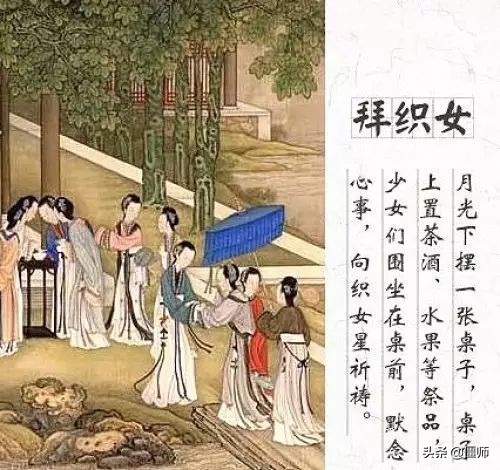 拜织女
月光下摆一张桌子，桌子
上置茶酒、水果等祭品，
少女们围坐在桌前，默念
心事，向织女星祈祷。
头条 @僵师